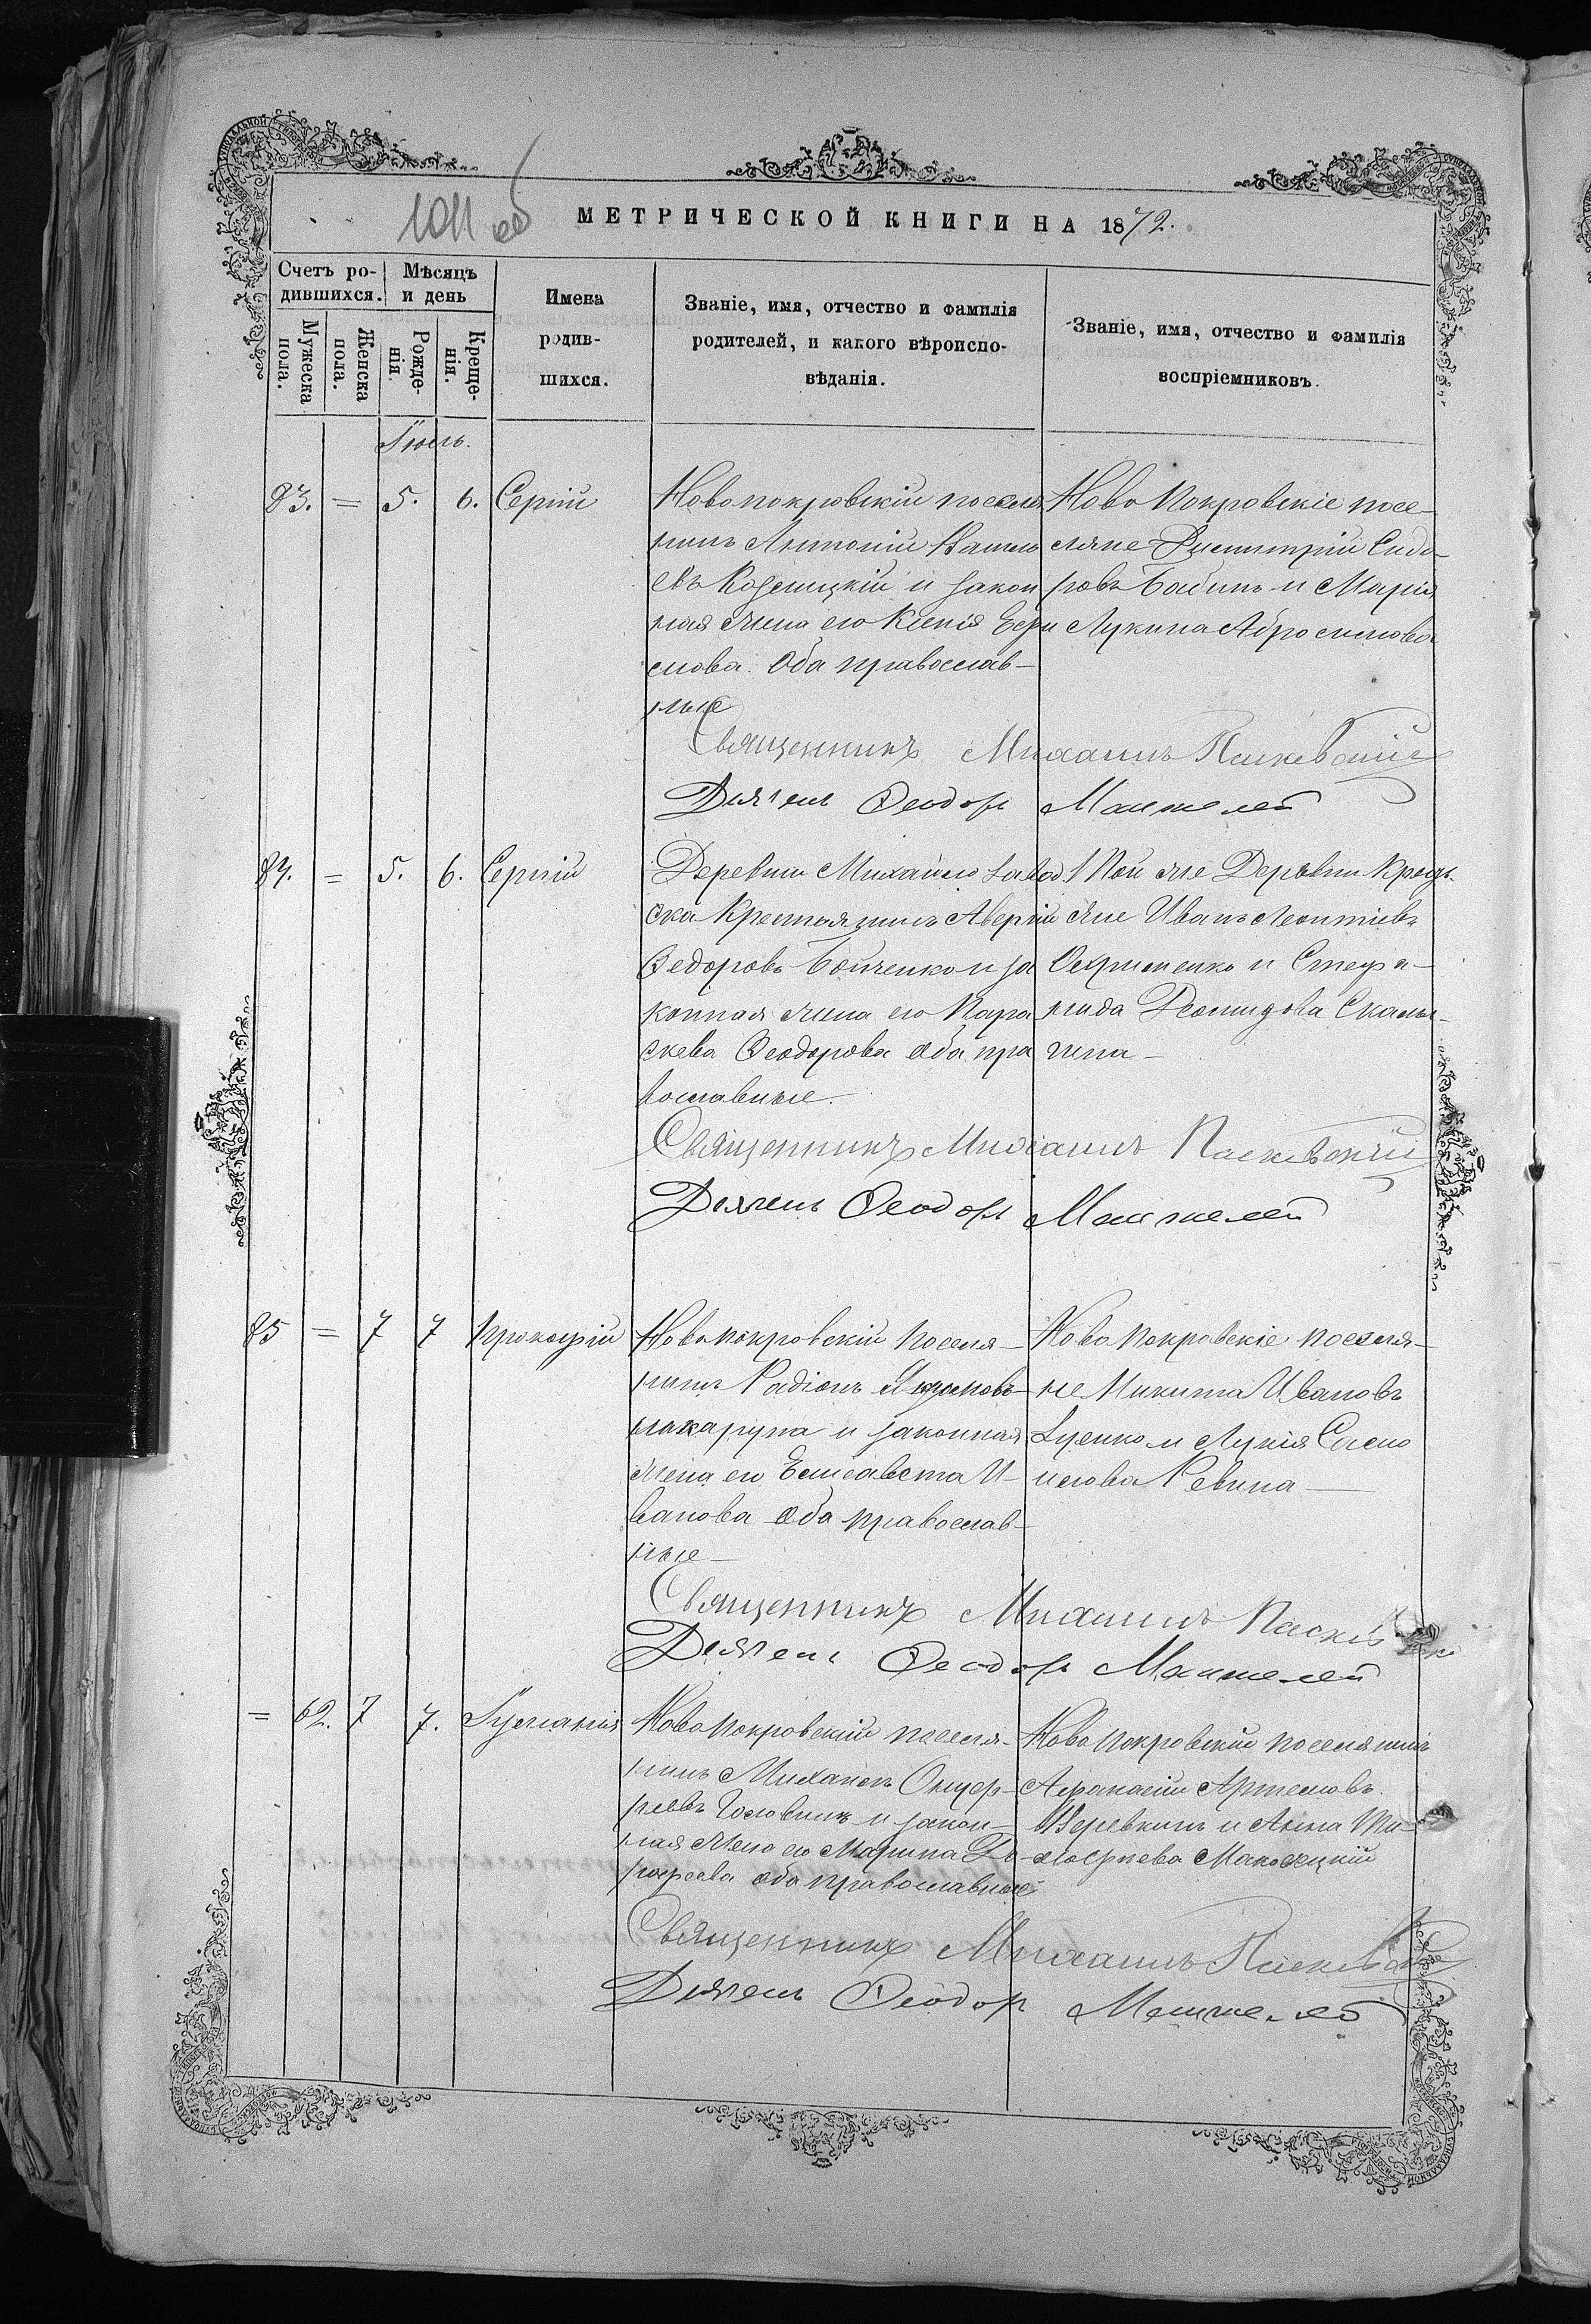 1011 об
МЕТРИЧЕСКОЙ КНИГИ НА 1872.
Счетъ ро-
дившихся.
Мѣсяцъ
и день
Мужеска
пола.
Женска
пола.
Рожде-
нія.
Креще-
нія.
Имена
родив-
шихся.
Званіе, имя, отчество и фамилія
родителей, и какого вѣроиспо-
вѣданія.
Званіе, имя, отчество и фамилія
воспріемниковъ.
Іюль.
83. = 5. 6. Сергій
Новопокровскій поселя
нинъ Антоній
евъ и закон
ная жена его Ксенія Ефи
мова Оба православ-
ные
Ново Покровскіе посе-
ляне Димитрій Сидо-
ровъ Бабинъ и Марія
Лукина Абросимова
Священникъ Михаилъ
Дьячекъ Ѳеодоръ
84. = 5. 6. Сергій
Деревни Михайло
ска Крестьянинъ Аверкій
Ѳедоровъ Бойченко и за
конная жена его Пара
скева Ѳеодорова оба пра
вославные.
Той же Деревни Кресть
яне Иванъ Леонтіевъ
и Стефа-
нида
Священникъ Михаилъ
Дьячекъ Ѳеодоръ
85 = 7 7 Прокофій
Новопокровскій Поселя-
нинъ Радіонъ
и законная
жена его Елисавета И-
ванова оба православ-
ные-
Ново Покровскіе поселя-
не Никита Ивановъ
и Лукія Само
илова Ревина-
Священникъ Михаилъ
Дьячекъ Ѳеодоръ
= 62. 7 7. Іуліанія
Новопокровскій поселя-
нинъ Михаилъ Онуф-
ріевъ Головинъ и закон-
ная жена его Марина До-
рофеева оба православные
Ново покровскій поселянинъ
Афанасій Артемовъ
Веревкинъ и Анна Ти-
мофіева
Священникъ Михаилъ
Дьячекъ Ѳеодоръ